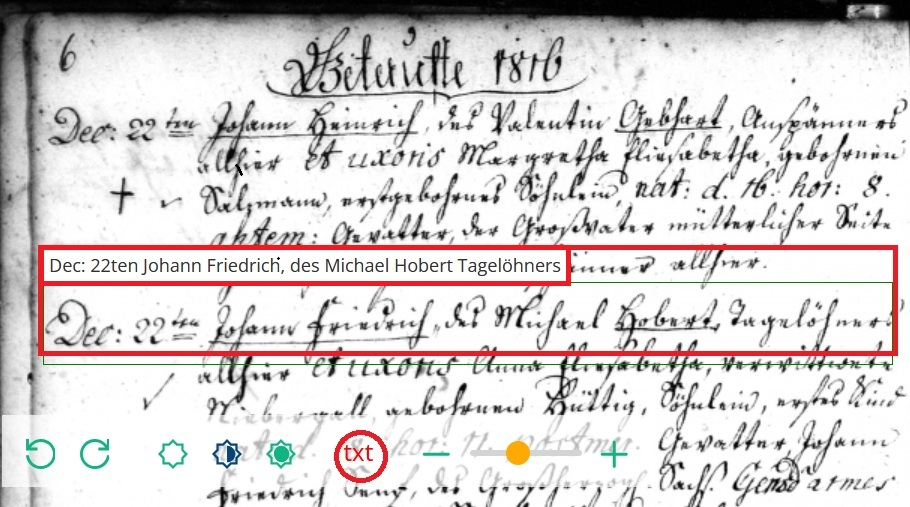 6
Getaufte 1816
Dec: 22ten Johann Heinrich, des Valentin Gebhart, Anspänners
allhier et uxoris Margretha Eliesabetha, gebohrnen
Salzmann, erstgebohrnes Söhnlein, nat: d. 16. hor: 8.
Gevatter, der Großvater mütterlicher Seite
allhier.
Dec: 22ten Johann Friedrich, des Michael Hobert Tagelöhners
Dec: 22ten Johann Friedrich, des Michael Hobert, Tagelöhners
allhier et uxoris Anna Eliesabetha, verwittwete
Niebergall gebohrnen Hüttig, Söhnlein, erstes Kind
hor: 11. Gevatter Johann
txt
Friedrich des Großherzogl. Sachs. Gensd'armes